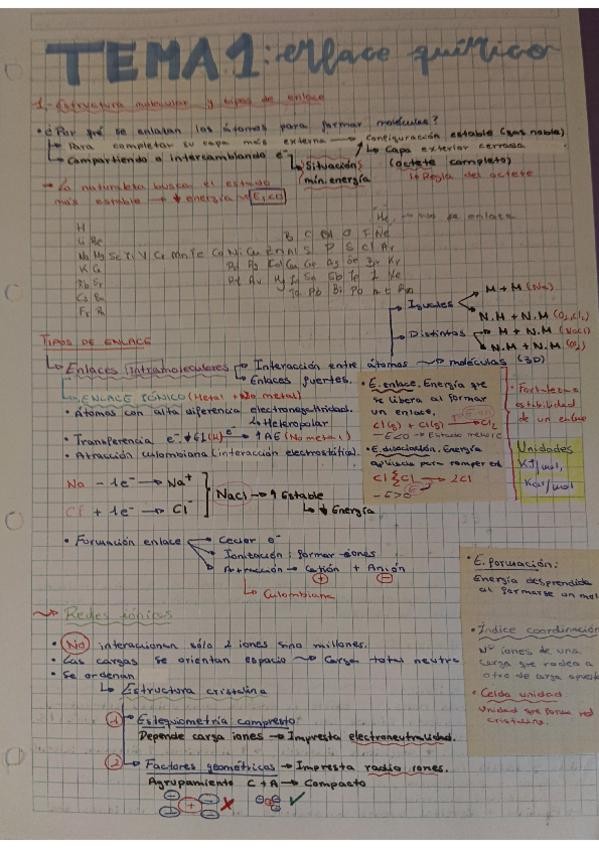 TEMA 1: enlace químico
1.- Estructura molecular y tipos de enlace
• ¿Por qué se enlazan los átomos para formar moléculas?
↳ Para completar su capa más externa → Configuración estable (gas noble)
↳ Compartiendo o intercambiando e⁻ ↳ Capa exterior cerrada
↳ Situación (octete completo)
mín. energía ↳ Regla del octete
→ La naturaleza busca el estado
más estable → ↓ energía
H
Na Mg Sc Ti V Cr Mn Fe Co Ni Cu Zn Al S P S Cl Ar
K Ca
Rb Sr
Cs Ba
Fr R
Iguales
M + M (Na)
N.M + N.M (O₂, Cl₂)
Distintas
M + N.M (NaCl)
N.M + N.M (O₂)
TIPOS DE ENLACE
↳ Enlaces intramoleculares
Interacción entre átomos → moléculas (3D)
Enlaces fuertes.
↳ ENLACE IÓNICO (Metal + No metal)
• Átomos con alta diferencia electronegatividad.
↳ Heteropolar
• Transferencia e⁻ ↓EI (M) →e⁻ ↑AE (No metal)
• Atracción culombiana (interacción electrostática).
• E. enlace. Energía que
se libera al formar
un enlace.
Cl(g) + Cl(g) → Cl₂
• E. disociación. Energía
aplicada para romper el
Cl Cl → 2Cl
- E>0
• Fortaleza o
estabilidad
de un enlace
Unidades
KJ/mol,
Kcal/mol
Na - 1e⁻ → Na⁺
Cl + 1e⁻ → Cl⁻
NaCl → ↑ Estable
↳ ↓ Energía
• Formación enlace
Ceder e⁻
Ionización: formar iones
Atracción → Catión + Anión
+ −
↳ Culombiana
→ Redes iónicas
• No interaccionan sólo 2 iones sino millones.
• Las cargas se orientan espacio → Carga total neutra
• Se ordenan
↳ Estructura cristalina
1 Estequiometría compuesto:
Depende carga iones → Impresta electroneutralidad.
2 Factores geométricos → Impresta radio iones.
Agrupamiento C + A → Compacto
• E. formación:
Energía desprendida
al formarse un mol
• Índice coordinación
Nº iones de una
carga que rodea a
otro de carga opuesta
• Celda unidad
Unidad que forma red
cristalina.